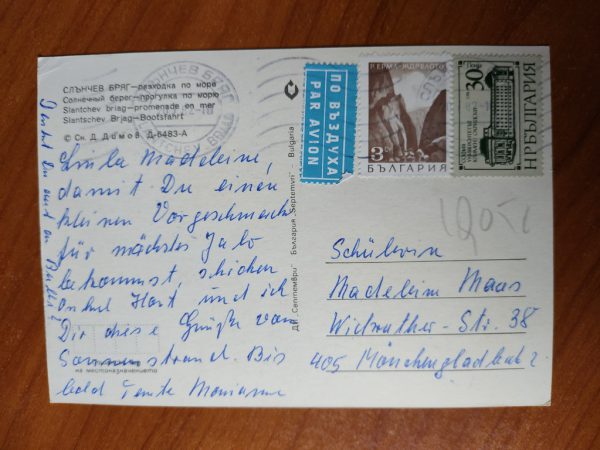 СЛЪНЧЕВ БРЯГ—разходка по море
Солнечный берег—прогулка по морю
Slantchev briag—promenade en mer
Slantschev Brjag—Bootsfahrt
© Ск. Д. Димов. Д-6483-А
Liebe Madeleine,
damit Du einen
kleinen Vorgeschmack
für nächstes Jahr
bekommst, schicken
Onkel Horst und ich
Dir diese Grüße vom
Sonnenstrand. Bis
bald Tante Marianne
на местоназначението
ДП „Септември" България „Septemvri" Bulgaria
СЛЪНЧЕВ БРЯГ
ПО ВЪЗДУХА
PAR AVION
Р. ЕРМА-ЖДРЕЛОТО
3
БЪЛГАРИЯ
30
НР БЪЛГАРИЯ
Schülerin
Madeleine Maas
Wickrather-Str. 38
405 Mönchengladbach 2